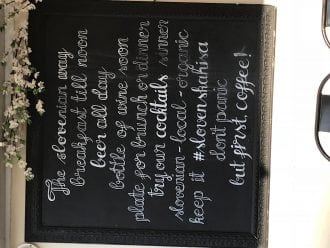 The slovenian way
breakfast till noon
beer all day
bottle of wine soon
plate for brunch or dinner
try our cocktails sinner
slovenian - local - organic
keep it #slovenskahisa
dont panic
but first, coffee!